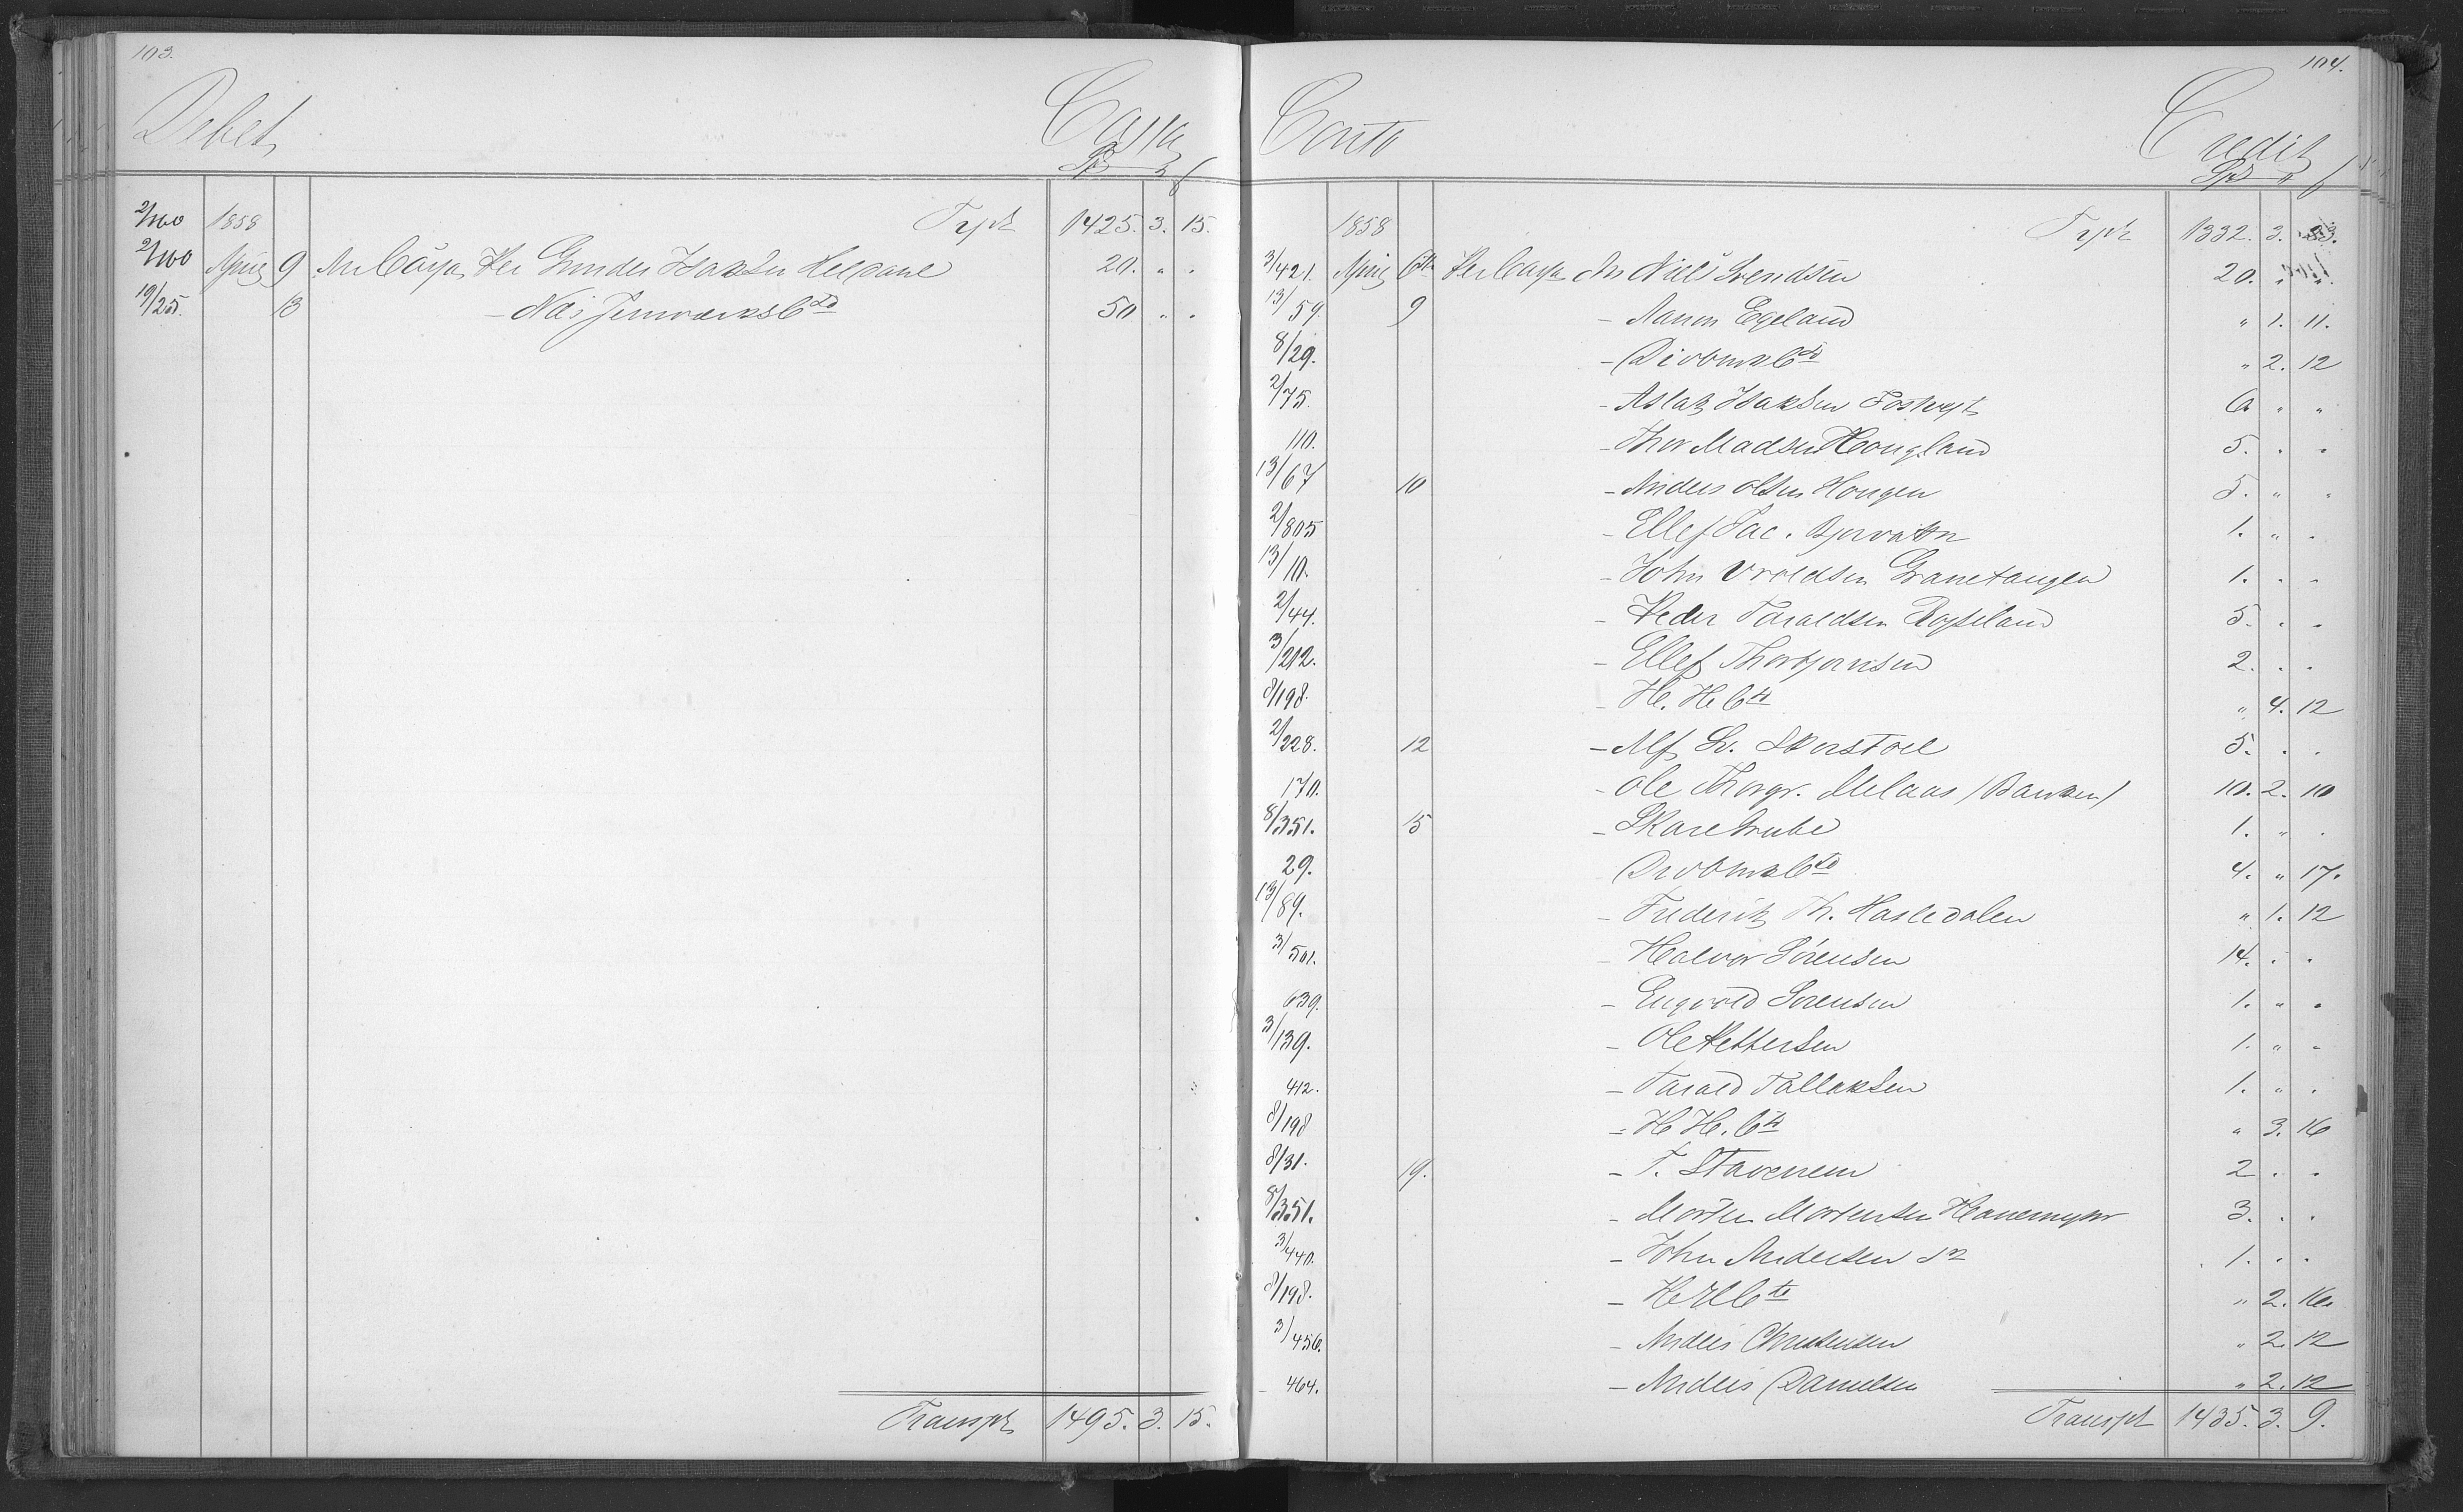 103.
Debet
Cassa
Spd
2/100 1858 Trpt 1425. 3. 15.
2/100 April 9 An Cassa Per Gunder Isaksen Helvane 20. " .
19/25. 13 - Næs Jernværks Cto 50 " .
Transpt 1495. 3. 15.
104.
Conto
Credit
Spd
1858 Trpt 1332. 3.
3/421. April Per Cassa An Niels Svendsen 20. " "
13/59. 9 - Aanon Egeland " 1. 11.
8/29. - Cto " 2. 12
2/75. - Aslak Isaksen Fosheyt 6 " "
110. - Thor Madsen Hougland 5. . .
13/67 10 - Anders Olsen Hougen 5. " "
2/805 - Ellef Jac. Bjorvatn 1. " .
13/10. - John Vroldsen Granetangen 1. . .
2/44. - Peder Taraldsen Bosseland 5. . .
3/212. - Ellef Thorbjørnsen 2. . .
8/198. - H. H. Cto " 4. 12
2/228. 12 - Alf Sv. Skerstøl 5. . .
170. - Ole Thorgr. Melaas (Banken) 10. 2. 10
8/351. 15 - Skare Grube 1. " .
29. Cto 4. " 17.
13/89. - Frederik Th. Hasledalen " 1. 12
3/501. - Halvor Sørensen 14. . .
639. - Engvold Sørensen 1. " .
3/139. - Ole Pettersen 1. " .
412. - Tarald Tallaksen 1. " .
8/198 - H H. Cto " 3. 16
8/31. 19. - T. Stavenem 2 . .
8/351. - Morten Mortensen Hanemyhr 3. . .
3/440. - John Andersen Sn 1. . .
8/198. - H H Cto " 2. 16.
3/456. - Anders Christensen " 2. 12
464. - Anders Danielsen " 2. 12
Transpt 1435. 3. 9.